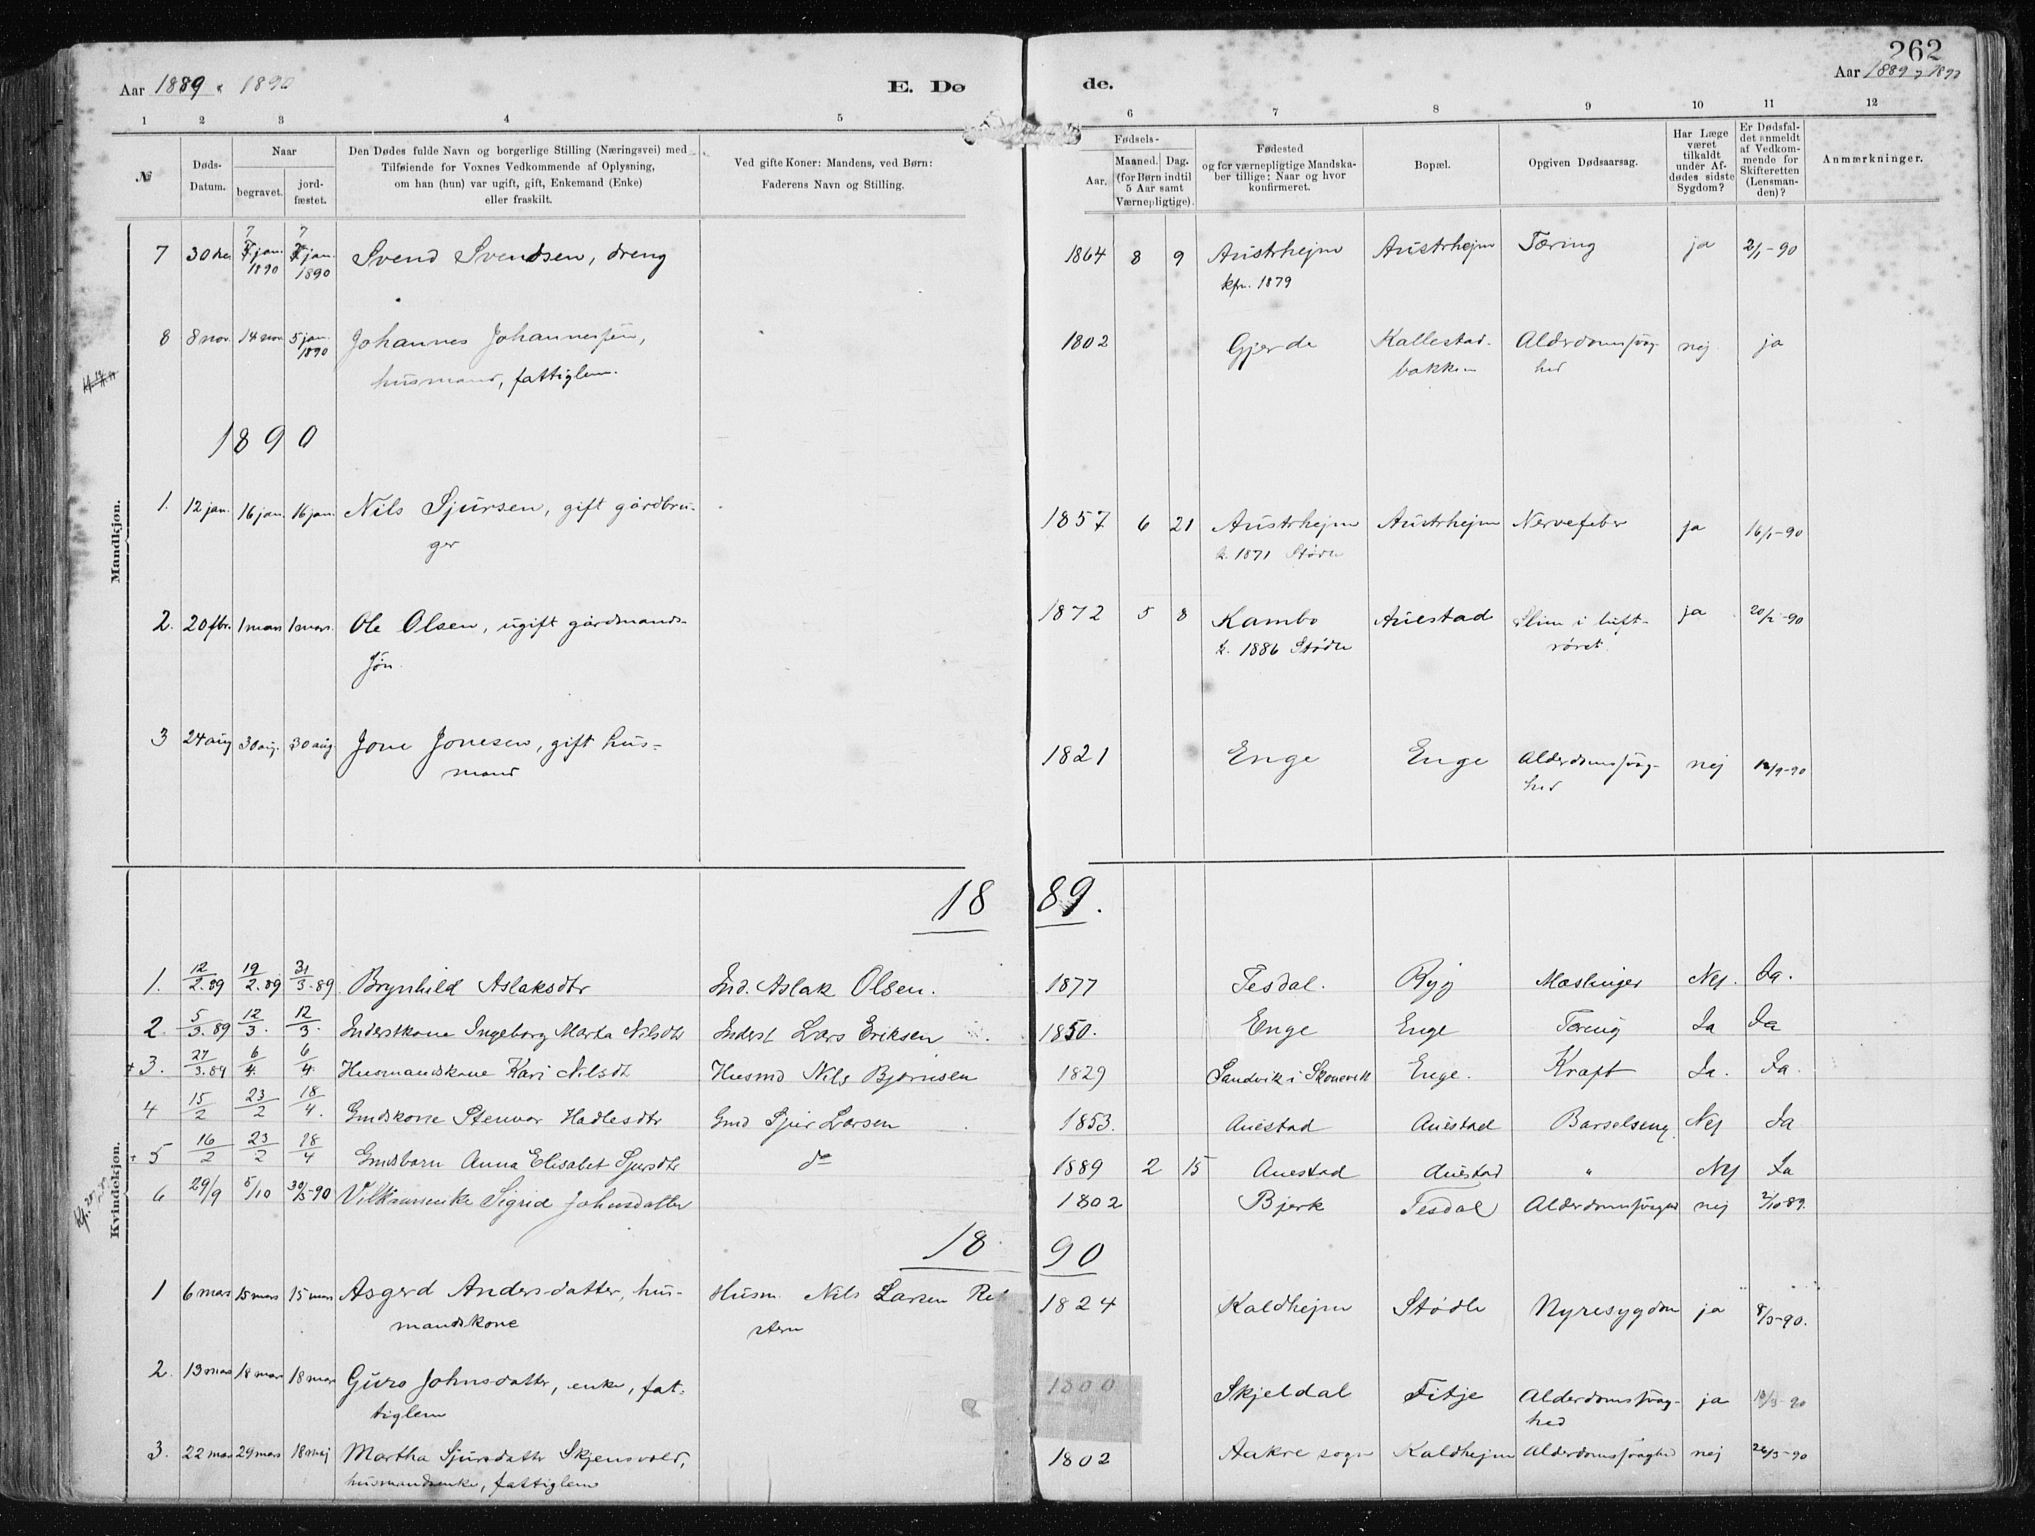 262
Aar 1889 & 1890
E. Dø de.
Aar 1889 & 1890
1 2 3 4 5 6 7 8 9 10 11 12
№
Døds-Datum.
Naar
begravet.
jord-fæstet.
Den Dødes fulde Navn og borgerlige Stilling (Næringsvei) med
Tilføiende for Voxnes Vedkommende af Oplysning,
om han (hun) var ugift, gift, Enkemand (Enke)
eller fraskilt.
Ved gifte Koner: Mandens, ved Børn:
Faderens Navn og Stilling.
Fødsels-
Aar.
Maaned. Dag.
(for Børn indtil
5 Aar samt
Værnepligtige).
Fødested
og for værnepligtige Mandska-
ber tillige: Naar og hvor
konfirmeret.
Bopæl.
Opgiven Dødsaarsag.
Har Læge
været
tilkaldt
under Af-
dødes sidste
Sygdom?
Er Dødsfal-
det anmeldt
af Vedkom-
mende for
Skifteretten
(Lensman-
den)?
Anmærkninger.
Mandkjøn.
7 30 des 7 jan. 1890 7 jan. 1890 Svend Svendsen, dreng 1864 8 9 Austrhejm Austrhejm Tæring ja 2/1-90
kfr. 1879
8 8 nov. 14 nov 5 jan. 1890 Johannes Johannessen, 1802 Gjerde Kallestad- Alderdomssvag- nej ja
husmand, fattiglem. bakken hed
1890
1. 12 jan. 16 jan. 16 jan. Nils Sjursen, gift gårdbru- 1857 6 21 Austrhejm Austrhejm Nervefeber ja 16/1-90
ger k. 1871 Stødle
2. 20 fbr. 1 mars 1 mars. Ole Olsen, ugift gårdmands- 1872 5 8 Kambo Auestad Slim i luft- ja 20/2-90
søn. k. 1886 Stødle røret.
3 24 aug 30 aug. 30 aug. Jone Jonesen, gift hus- 1821 Enge Enge Alderdomssvag- nej /9-90
mand hed
1889.
Kvindekjøn.
1. 12/2.89 19/2.89 31/3.89 Brynhild Aslaksdtr Ind. Aslak Olsen. 1877 Tesdal. Ryg Mæslinger Nej. Ja.
2. 5/3.89 12/3. 12/3. Inderstkone Ingeborg Marta Nilsdtr Inderst Lars Eriksen 1850. Enge Enge Tæring Ja Ja
+3. 27/3.89 6/4. 6/4. Husmandskone Kari Nilsdtr Husmd Nils Bjørnsen 1829 Sandvik i Skonevik Enge. Kræft Ja. Ja.
4 15/2 23/2 18/4. Gmdskone Stenvor Hadlesdtr Gmd Sjur Larsen 1853. Auestad Auestad Barselseng Nej Ja
+5 16/2 23/2 18/4 Gmdsbarn Anna Elisabet Sjursdtr do 1889 2 15 Auestad Auestad " Nej Ja
6 29/9 5/10 30/5-90 Vilkaarsenke Sigrid Johnsdatter 1802 Bjerk Tesdal Alderdomssvaghed nej 2/10 89.
1890
1 6 mars 15 mars 15 mars Asgerd Andersdatter, hus- Husm. Nils Larsen 1824 Kaldhejm Stødle Nyresygdom ja 8/3-90.
mandskone
2. 13 mars 18 mars 18 mars Guro Johnsdatter, enke, fat- 1800 Skjeldal Fitje Alderdomssvag- ja /3-90
tiglem hed
3. 22 mars 29 mars 18 maj Martha Sjursdatter Skjensvold, 1802 Aakre sogn Kaldhejm Alderdomssvaghed nej 26/3-90
husmandsenke, fattiglem